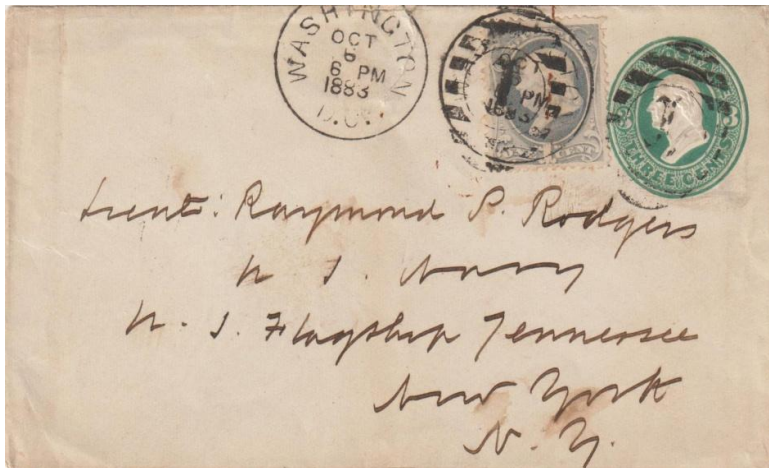 WASHINGTON
OCT
6
6 PM
1883
D.C.
1883
THREE CENTS
Lieut: Raymond P. Rodgers
U S. Navy
U. S. Flagship Tennessee
New York
N. Y.